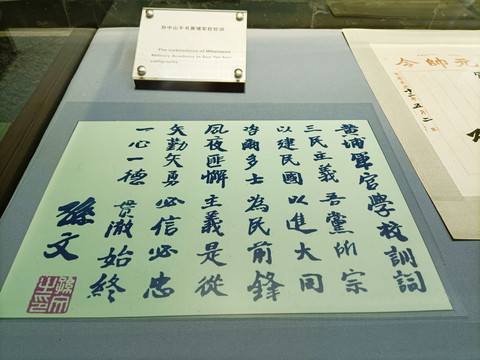 孙中山手书黄埔军校校训
The Instructions of Whampoa
Military Academy in Sun Yat-Sen'
calligraphy
黄埔軍官學校訓詞
三民主義 吾黨所宗
以建民國 以進大同
咨爾多士 為民前鋒
夙夜匪懈 主義是從
矢勤矢勇 必信必忠
一心一德 貫澈始終
孫文
孫文之印
元帥令